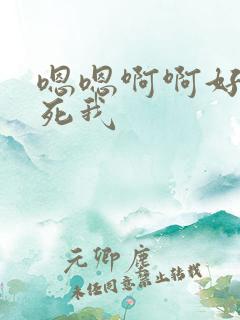 嗯嗯啊啊好
死我
元卿尘
未经同意禁止转载